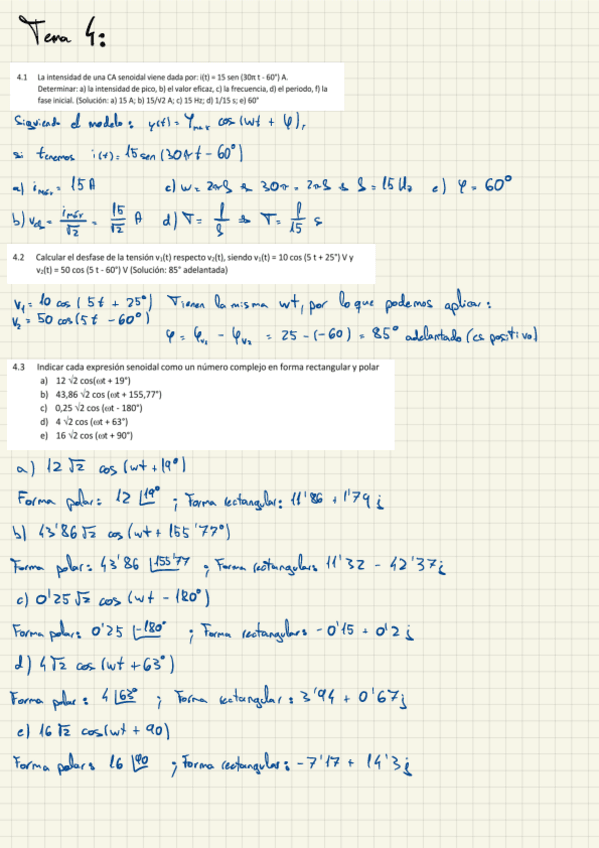 Tema 4:
4.1 La intensidad de una CA senoidal viene dada por: i(t) = 15 sen (30π t - 60°) A.
Determinar: a) la intensidad de pico, b) el valor eficaz, c) la frecuencia, d) el periodo, f) la
fase inicial. (Solución: a) 15 A; b) 15/√2 A; c) 15 Hz; d) 1/15 s; e) 60°
Siguiendo el modelo: y(t) = Ymax cos (wt + φ),
si tenemos i(t) = 15 sen (30πt - 60°)
a) imáx = 15 A c) w = 2πf → 30π = 2πf → f = 15 Hz e) φ = 60°
b) vef = imáx/√2 = 15/√2 A d) T = 1/f → T = 1/15 s
4.2 Calcular el desfase de la tensión v₁(t) respecto v₂(t), siendo v₁(t) = 10 cos (5 t + 25°) V y
v₂(t) = 50 cos (5 t - 60°) V (Solución: 85° adelantada)
v₁ = 10 cos (5t + 25°) Tienen la misma wt, por lo que podemos aplicar:
v₂ = 50 cos (5t - 60°)
φ = φv₁ - φv₂ = 25 - (-60) = 85° adelantado (es positivo)
4.3 Indicar cada expresión senoidal como un número complejo en forma rectangular y polar
a) 12 √2 cos(ωt + 19°)
b) 43,86 √2 cos (ωt + 155,77°)
c) 0,25 √2 cos (ωt - 180°)
d) 4 √2 cos (ωt + 63°)
e) 16 √2 cos (ωt + 90°)
a) 12 √2 cos (wt + 19°)
Forma polar: 12 ∠19° ; Forma rectangular: 11'86 + 1'79 j
b) 43'86 √2 cos (wt + 155'77°)
Forma polar: 43'86 ∠155'77 ; Forma rectangular: 11'32 - 42'37j
c) 0'25 √2 cos (wt - 180°)
Forma polar: 0'25 ∠-180° ; Forma rectangular: -0'15 + 0'2 j
d) 4√2 cos (wt + 63°)
Forma polar: 4 ∠63° ; Forma rectangular: 3'94 + 0'67j
e) 16 √2 cos(wt + 90)
Forma polar: 16 ∠90 ; Forma rectangular: -7'17 + 14'3j